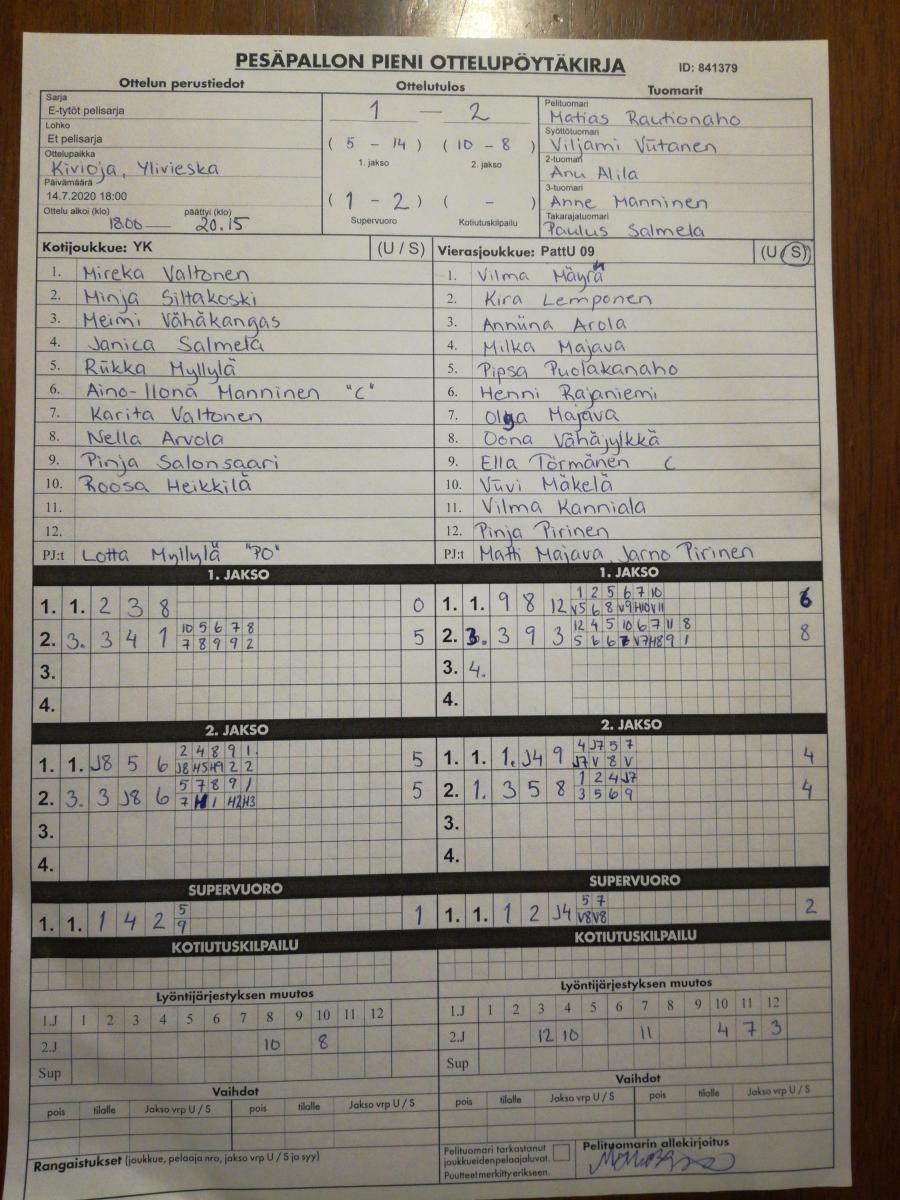 PESÄPALLON PIENI OTTELUPÖYTÄKIRJA ID: 841379
Ottelun perustiedot Ottelutulos Tuomarit
Sarja
E-tytöt pelisarja
Lohko
Et pelisarja
Ottelupaikka
Kivioja, Ylivieska
Päivämäärä
14.7.2020 18:00
Ottelu alkoi (klo) päättyi (klo)
18.00 — 20.15
1 — 2
( 5 - 14 ) ( 10 - 8 )
1. jakso 2. jakso
( 1 - 2 ) ( - )
Supervuoro Kotiutuskilpailu
Pelituomari
Matias Rautionaho
Syöttötuomari
Viljami Viitanen
2-tuomari
Anu Alila
3-tuomari
Anne Manninen
Takarajatuomari
Paulus Salmela
Kotijoukkue: YK (U / S)
1. Mireka Valtonen
2. Minja Siltakoski
3. Meimi Vähäkangas
4. Janica Salmela
5. Riikka Myllylä
6. Aino-Ilona Manninen "C"
7. Karita Valtonen
8. Nella Arvola
9. Pinja Salonsaari
10. Roosa Heikkilä
11.
12.
PJ:t Lotta Myllylä "PO"
Vierasjoukkue: PattU 09 (U / S)
1. Vilma Mäyrä
2. Kira Lemponen
3. Anniina Arola
4. Milka Majava
5. Pipsa Puolakanaho
6. Henni Rajaniemi
7. Olga Majava
8. Oona Vähäjylkkä
9. Ella Törmänen C
10. Viivi Mäkelä
11. Vilma Kanniala
12. Pinja Pirinen
PJ:t Matti Majava Jarno Pirinen
1. JAKSO
1. 1. 2 3 8 0
2. 3. 3 4 1 10 5 6 7 8 5
7 8 9 9 2
3.
4.
1. JAKSO
1. 1. 9 8 12 1 2 5 6 7 10 6
V5 6 8 V9 H10 V11
2. 3. 3 9 3 12 4 5 10 6 7 11 8 8
5 6 6 7 V7 H8 9 1
3. 4.
4.
2. JAKSO
1. 1. J8 5 6 2 4 8 9 1 5
J8 H5 H9 2 2
2. 3. 3 J8 6 5 7 8 9 1 5
7 1 H2 H3
3.
4.
2. JAKSO
1. 1. 1. J4 9 4 J7 5 7 4
J7 V 8 V
2. 1. 3 5 8 1 2 4 J7 4
3 5 6 9
3.
4.
SUPERVUORO
1. 1. 1 4 2 5 1
9
SUPERVUORO
1. 1. 1 2 J4 5 7 2
V8 V8
KOTIUTUSKILPAILU
KOTIUTUSKILPAILU
Lyöntijärjestyksen muutos
1.J 1 2 3 4 5 6 7 8 9 10 11 12
2.J 10 8
Sup
Lyöntijärjestyksen muutos
1.J 1 2 3 4 5 6 7 8 9 10 11 12
2.J 12 10 11 4 7 3
Sup
Vaihdot
pois tilalle Jakso vrp U / S pois tilalle Jakso vrp U / S
Vaihdot
pois tilalle Jakso vrp U / S pois tilalle Jakso vrp U / S
Rangaistukset (joukkue, pelaaja nro, jakso vrp U / S ja syy)
Pelituomari tarkastanut
joukkueiden pelaajaluvat.
Puutteet merkitty erikseen.
Pelituomarin allekirjoitus